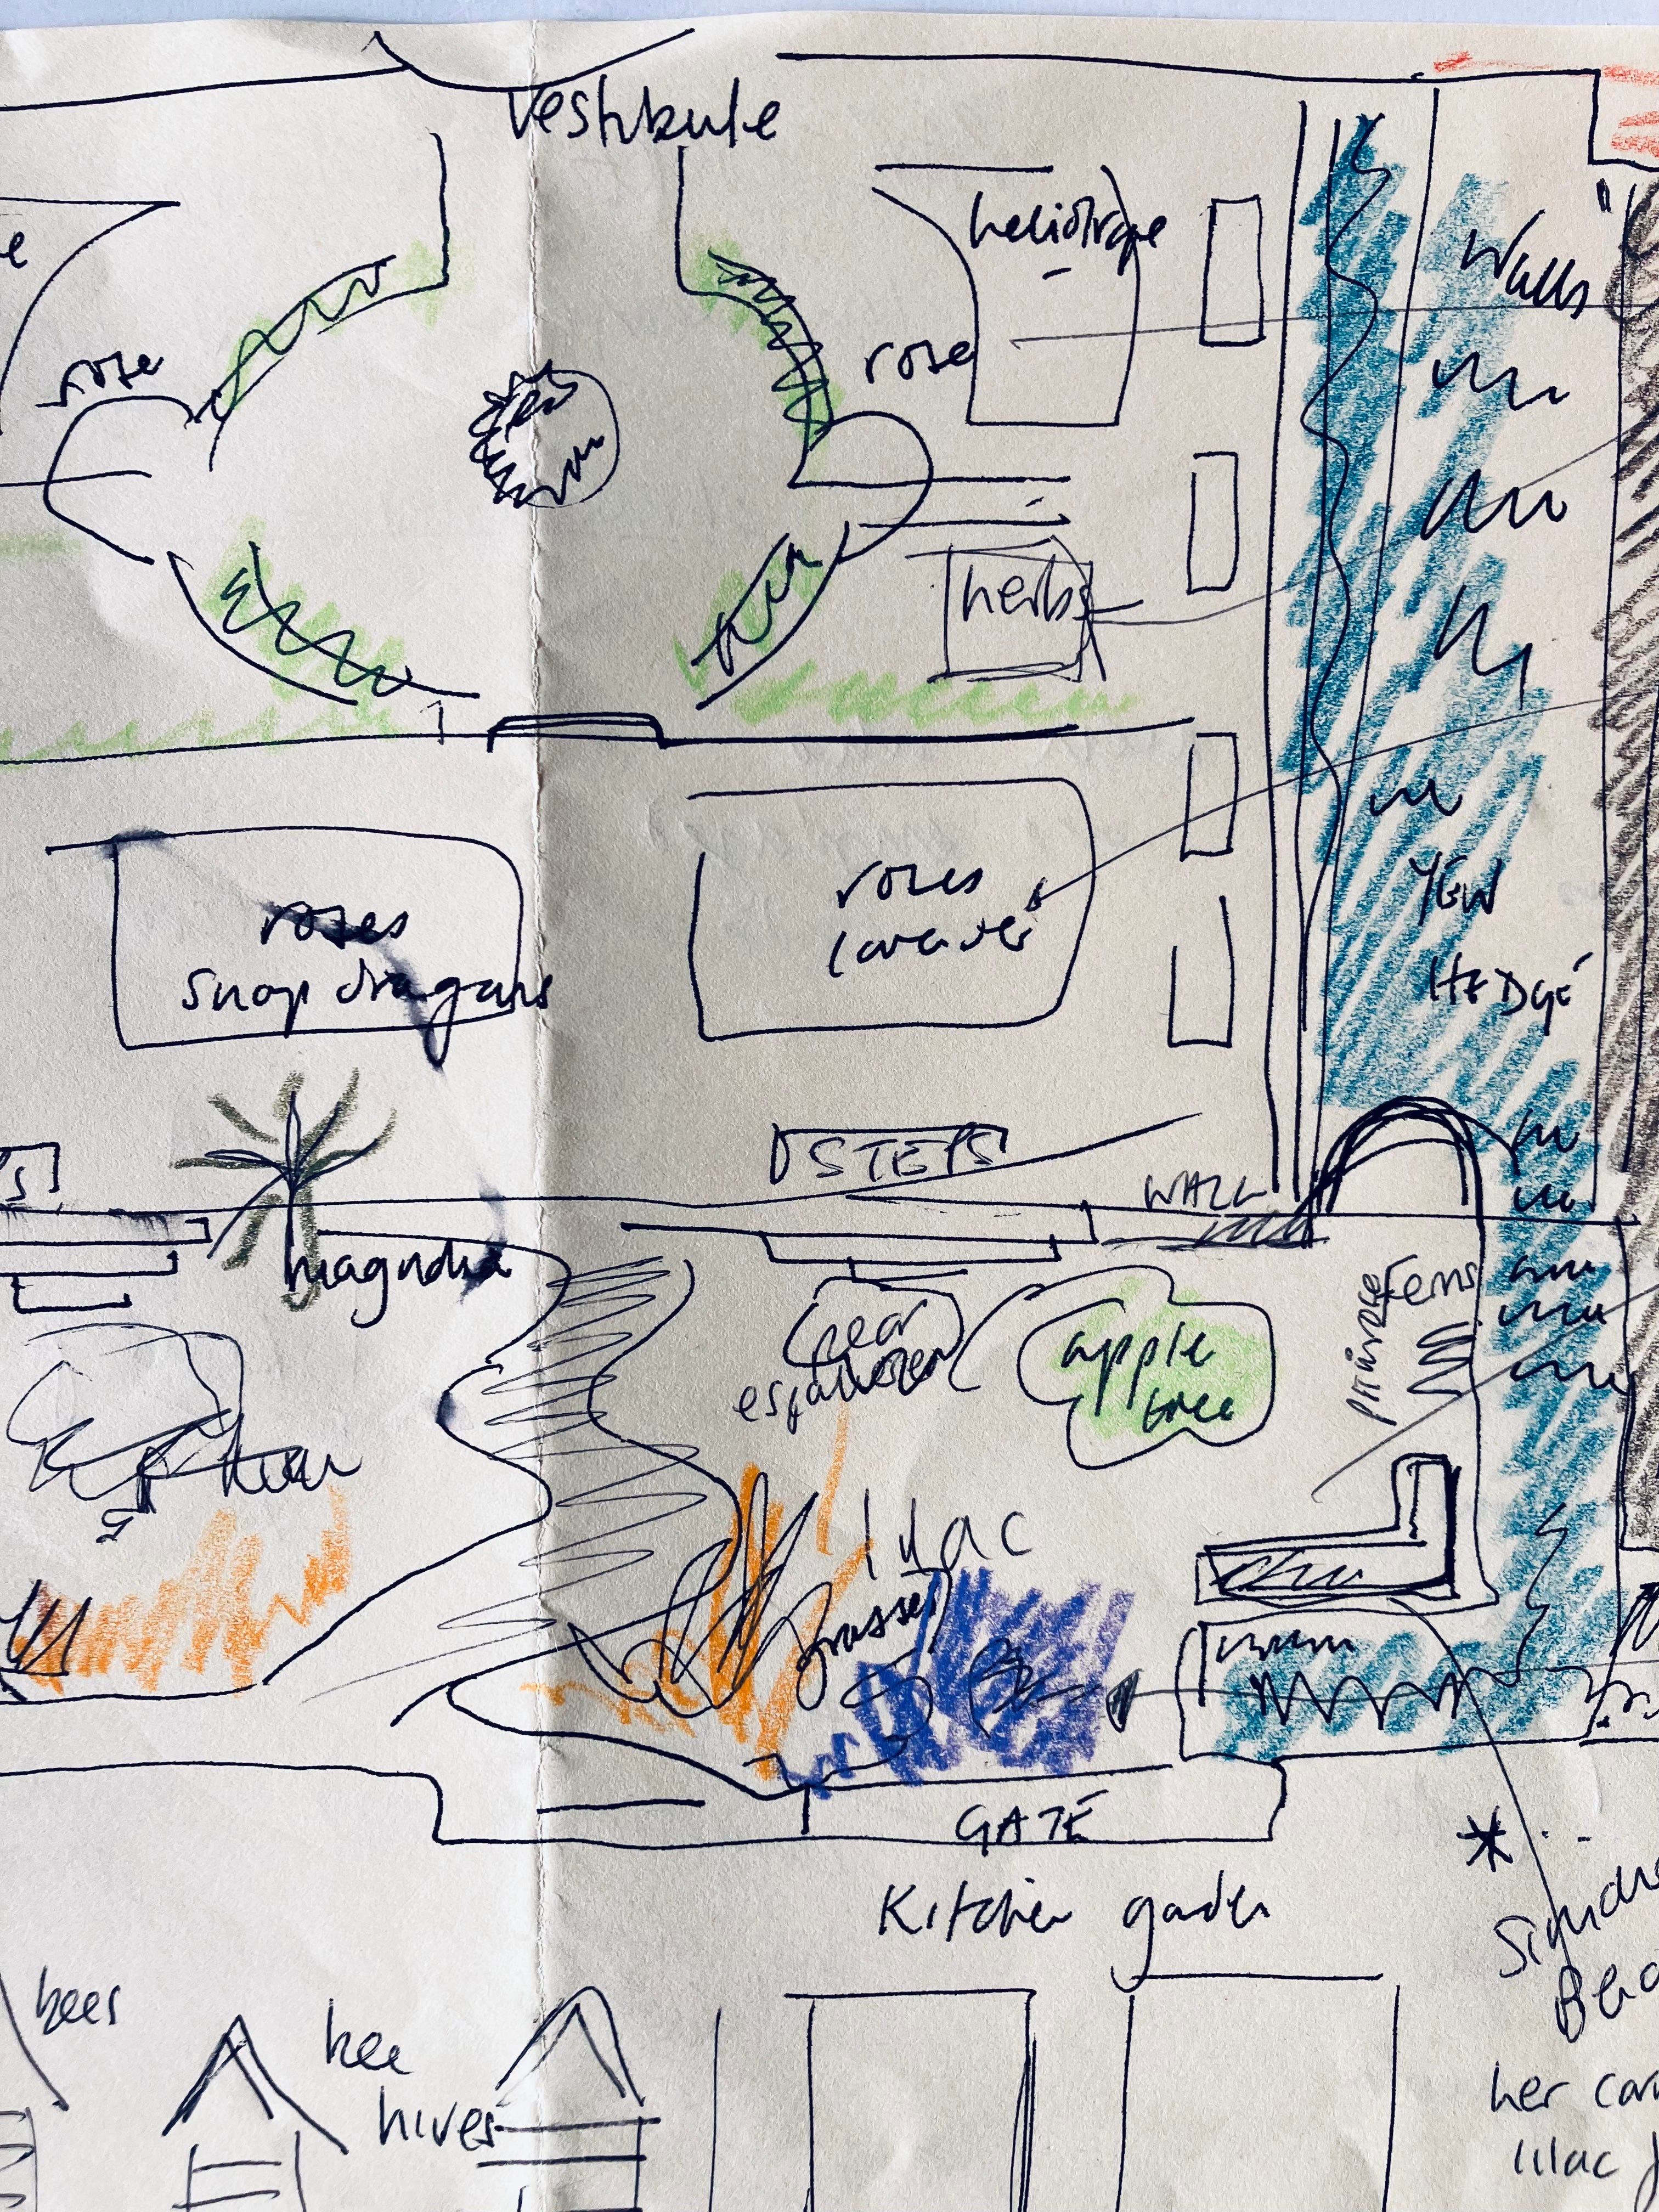 Vestibule
heliotrope
Walls
rose
rose
herbs
roses
snap dragons
roses
lavender
YEW
HEDGE
STEPS
WALL
magnolia
Ferns
primrose
pear
espaliered
apple
tree
lilac
grasses
GATE
Kitchen garden
bees
bee
hives
her
lilac